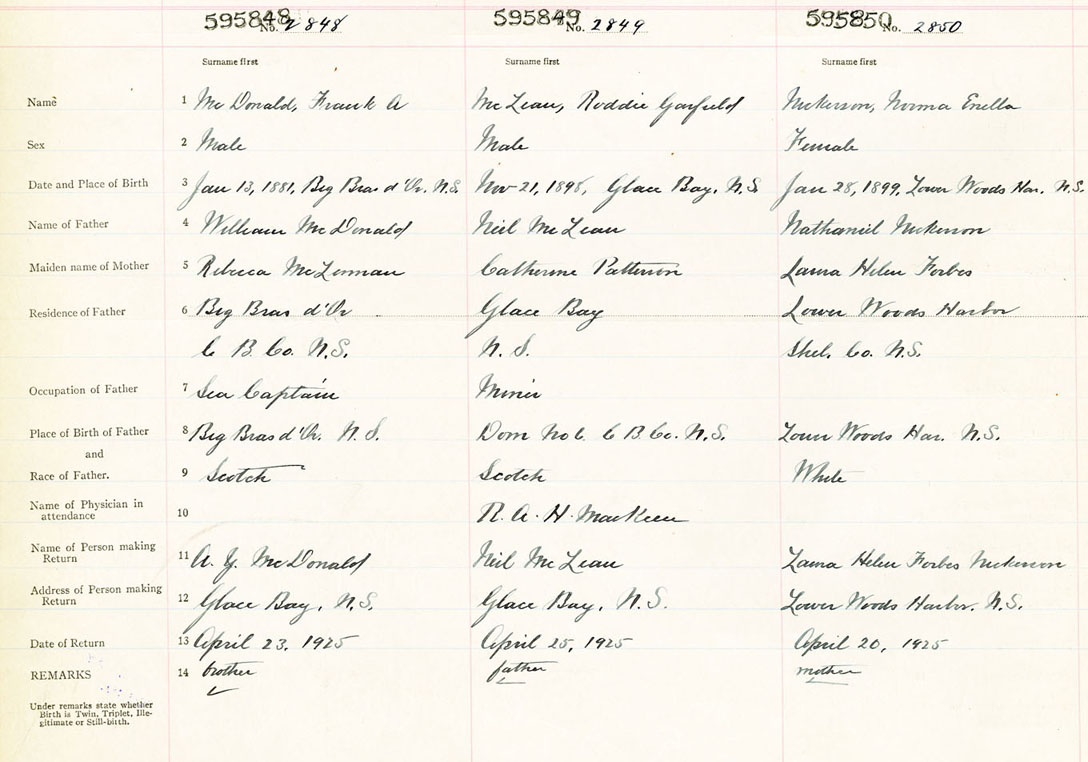 595848 No. 2848 595849 No. 2849 595850 No. 2850
Surname first Surname first Surname first
Name 1 Mc Donald, Frank A Mc Lean, Roddie Garfield Nickerson, Norma
Sex 2 Male Male Female
Date and Place of Birth 3 Jan 13, 1881, Big Bras d'Or. N.S. Nov 21, 1898, Glace Bay, N.S Jan 28, 1899, Lower Woods Har. N.S.
Name of Father 4 William Mc Donald Neil Mc Lean Nathaniel Nickerson
Maiden name of Mother 5 Rebecca Catherine Patterson Laura Helen Forbes
Residence of Father 6 Big Bras d'Or Glace Bay Lower Woods Harbor
C B. Co. N.S. N. S. Shel. Co. N.S.
Occupation of Father 7 Sea Captain Miner
Place of Birth of Father 8 Big Bras d'Or. N. S. Dom No 6. C B. Co. N.S. Lower Woods Har. N.S.
and
Race of Father. 9 Scotch Scotch White
Name of Physician in
attendance 10 R. A. H. MacKeen
Name of Person making
Return 11 A. Y. Mc Donald Neil Mc Lean Laura Helen Forbes Nickerson
Address of Person making
Return 12 Glace Bay, N.S. Glace Bay, N.S. Lower Woods Harbor. N.S.
Date of Return 13 April 23, 1925 April 25, 1925 April 20, 1925
REMARKS 14 brother father mother
Under remarks state whether
Birth is Twin, Triplet, Ille-
gitimate or Still-birth.